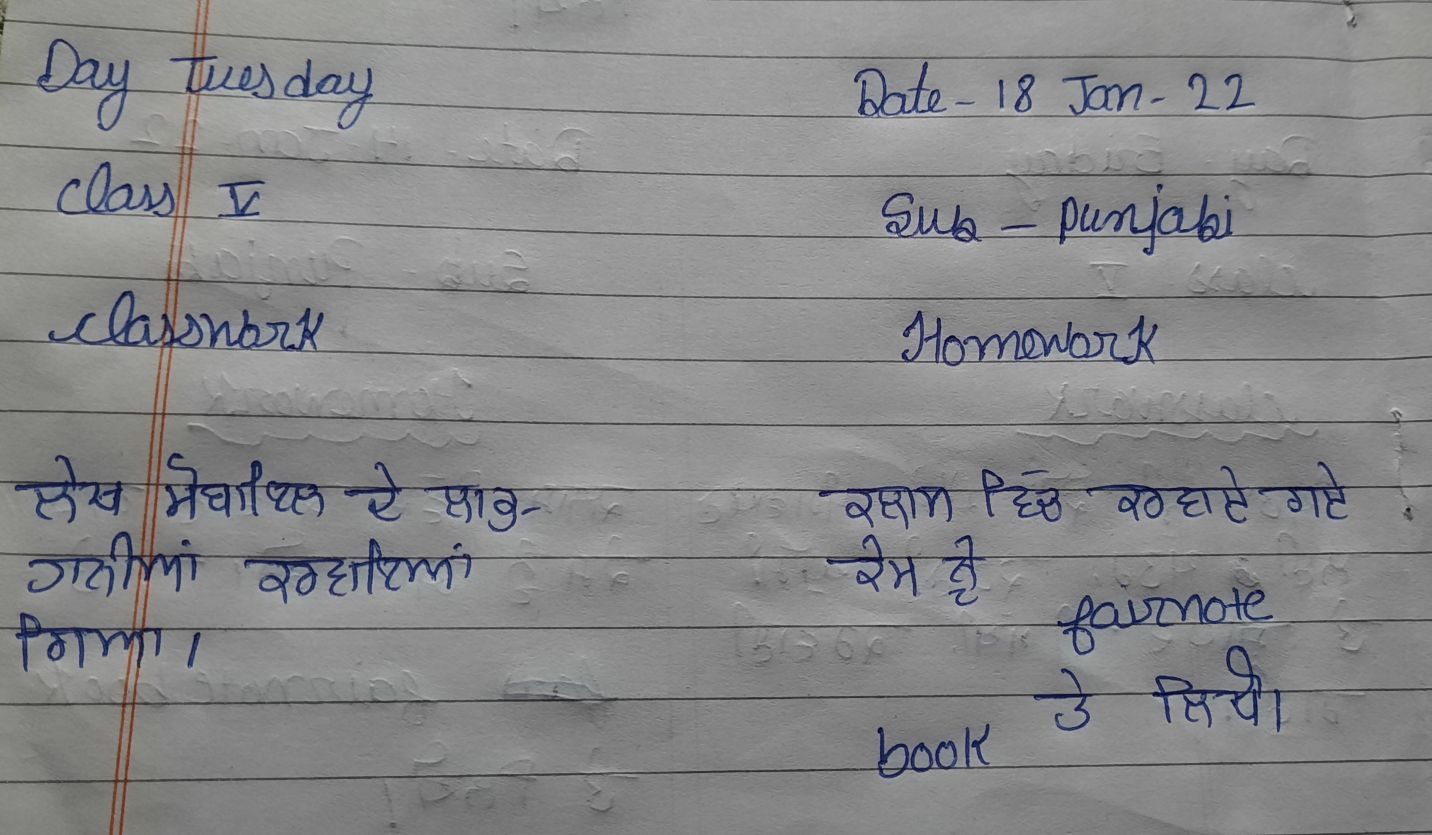 Day Tuesday Date - 18 Jan - 22
Class V Sub - Punjabi
Classwork Homework
ਲੇਖ ਮੋਬਾਇਲ ਦੇ ਲਾਭ- ਕਲਾਸ ਵਿੱਚ ਕਰਵਾਏ ਗਏ
ਕਰਵਾਇਆਂ ਕੰਮ ਨੂੰ
fairnote
ਗਿਆ।
ਤੇ ਲਿਖੋ।
book